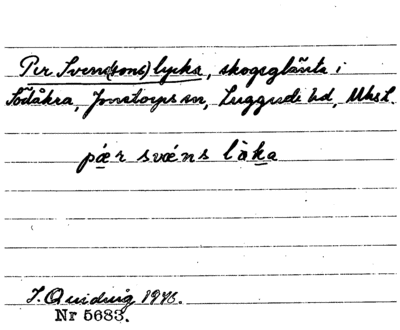 Per Sven(sons) lycka, skogsglänta i
Södåkra, Jonstorps sn, Luggude hd, Mhs l.
pær svæns làka
J. Quidwig 1976.
Nr 5683.